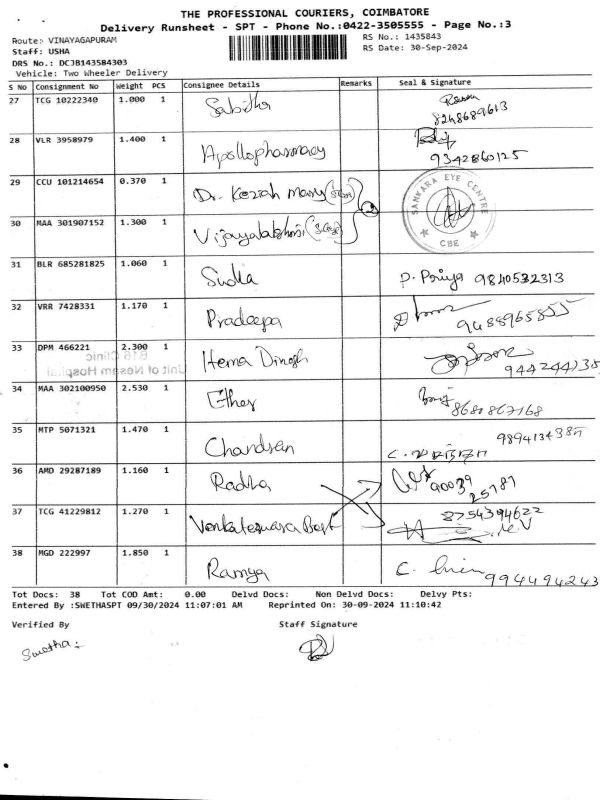 THE PROFESSIONAL COURIERS, COIMBATORE
Delivery Runsheet - SPT - Phone No.:0422-3505555 - Page No.:3
Route: VINAYAGAPURAM RS No.: 1435843
Staff: USHA RS Date: 30-Sep-2024
DRS No.: DCJB143584303
Vehicle: Two Wheeler Delivery
S No Consignment No Weight PCS Consignee Details Remarks Seal & Signature
27 TCG 10222340 1.000 1 Sabitha 8248689613
28 VLR 3958979 1.400 1 Apollopharmacy 9342860125
29 CCU 101214654 0.370 1 Dr. Keziah mary 2 SANKARA EYE CENTRE CBE
30 MAA 301907152 1.300 1 Vijayalakshmi
31 BLR 685281825 1.060 1 Sudha P. Priya 9840532313
32 VRR 7428331 1.170 1 Pradeepa 9488965855
33 DPM 466221 2.300 1 Hema Dinesh 944244735
B16 Clinic
Unit of Nesam Hospital
34 MAA 302100950 2.530 1 Ether 8680867168
35 MTP 5071321 1.470 1 Chandran 9894134385
36 AMD 29287189 1.160 1 Radha 90039 25787
37 TCG 41229812 1.270 1 Venkateswara Bopt 8754394622
38 MGD 222997 1.850 1 Ramya 994494243
Tot Docs: 38 Tot COD Amt: 0.00 Delvd Docs: Non Delvd Docs: Delvy Pts:
Entered By :SWETHASPT 09/30/2024 11:07:01 AM Reprinted On: 30-09-2024 11:10:42
Verified By Staff Signature
Swetha